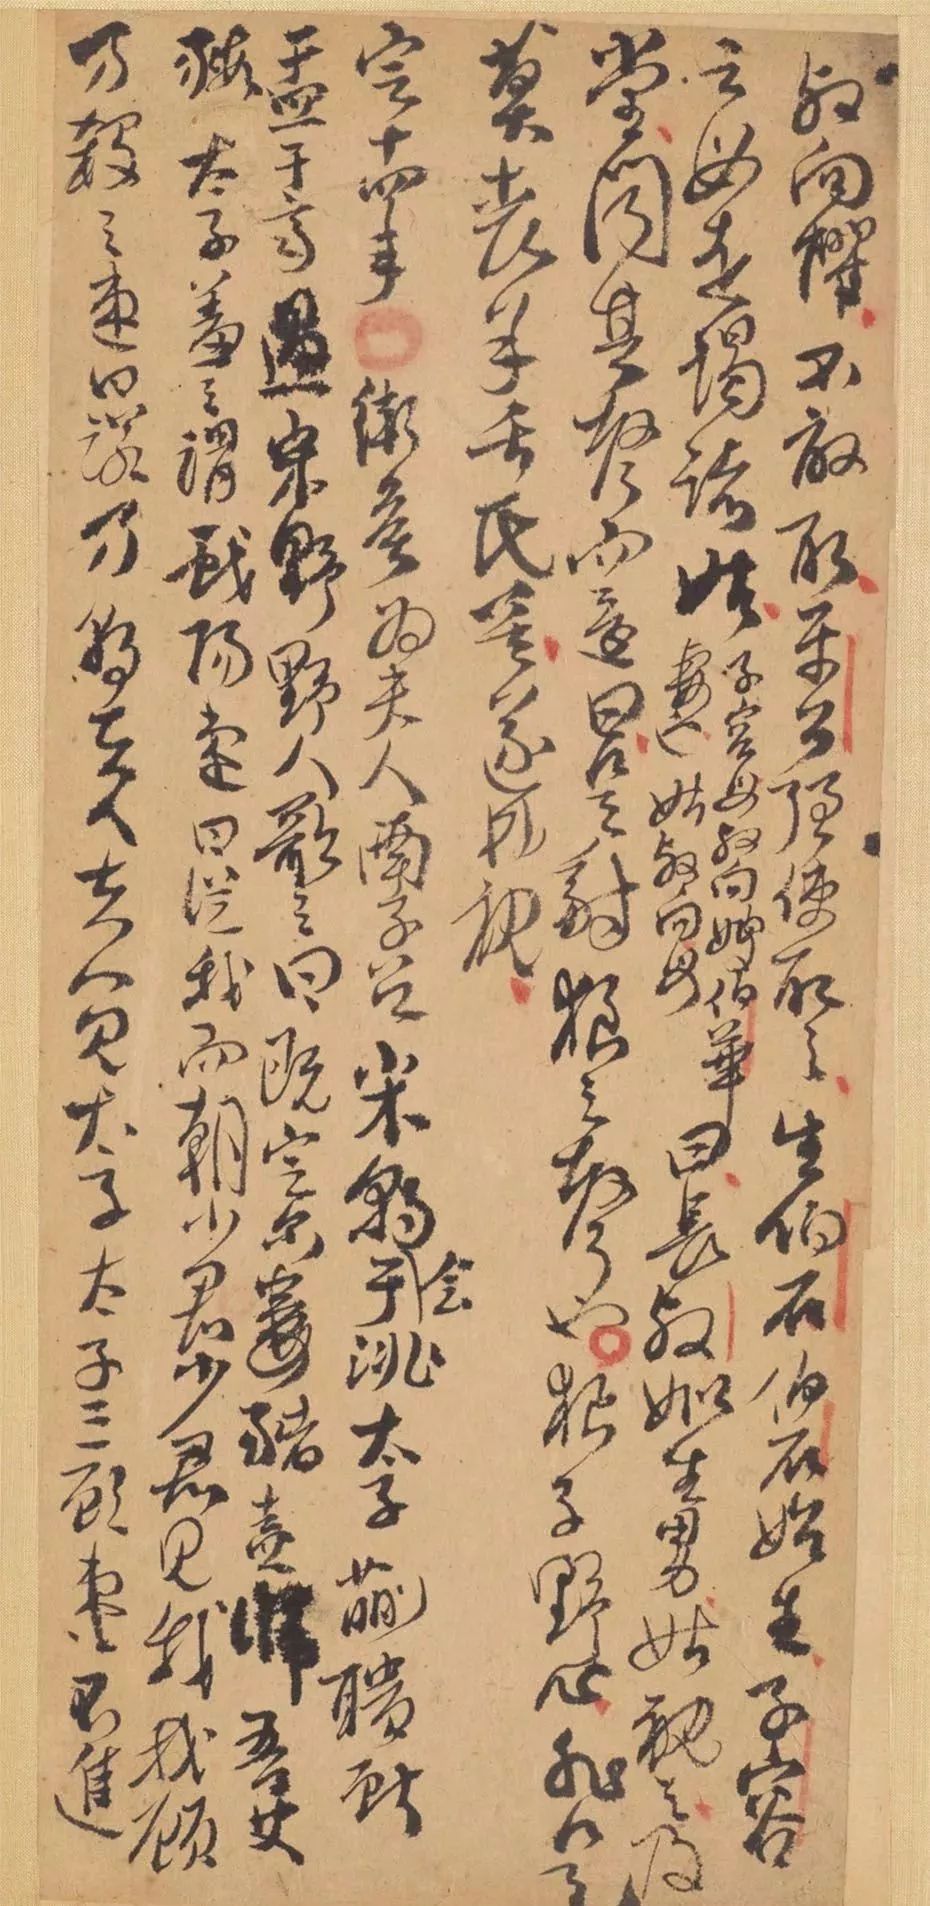 叔向懼不敢取平公強使取之生伯石伯石始生子容
之母走謁諸姑子容母叔向嫂伯華妻也姑叔向母曰長叔姒生男姑視之及
堂聞其聲而還曰是豺狼之聲也狼子野心非是
莫喪羊舌氏矣遂弗視
定十四年衛侯為夫人南子召宋朝会于洮太子蒯聵獻
盂于齊過宋野野人歌之曰既定尔婁豬盍歸吾艾
豭太子羞之謂戲陽速曰從我而朝少君少君見我我顧
乃殺之速曰諾乃朝夫人夫人見太子太子三顧速不進